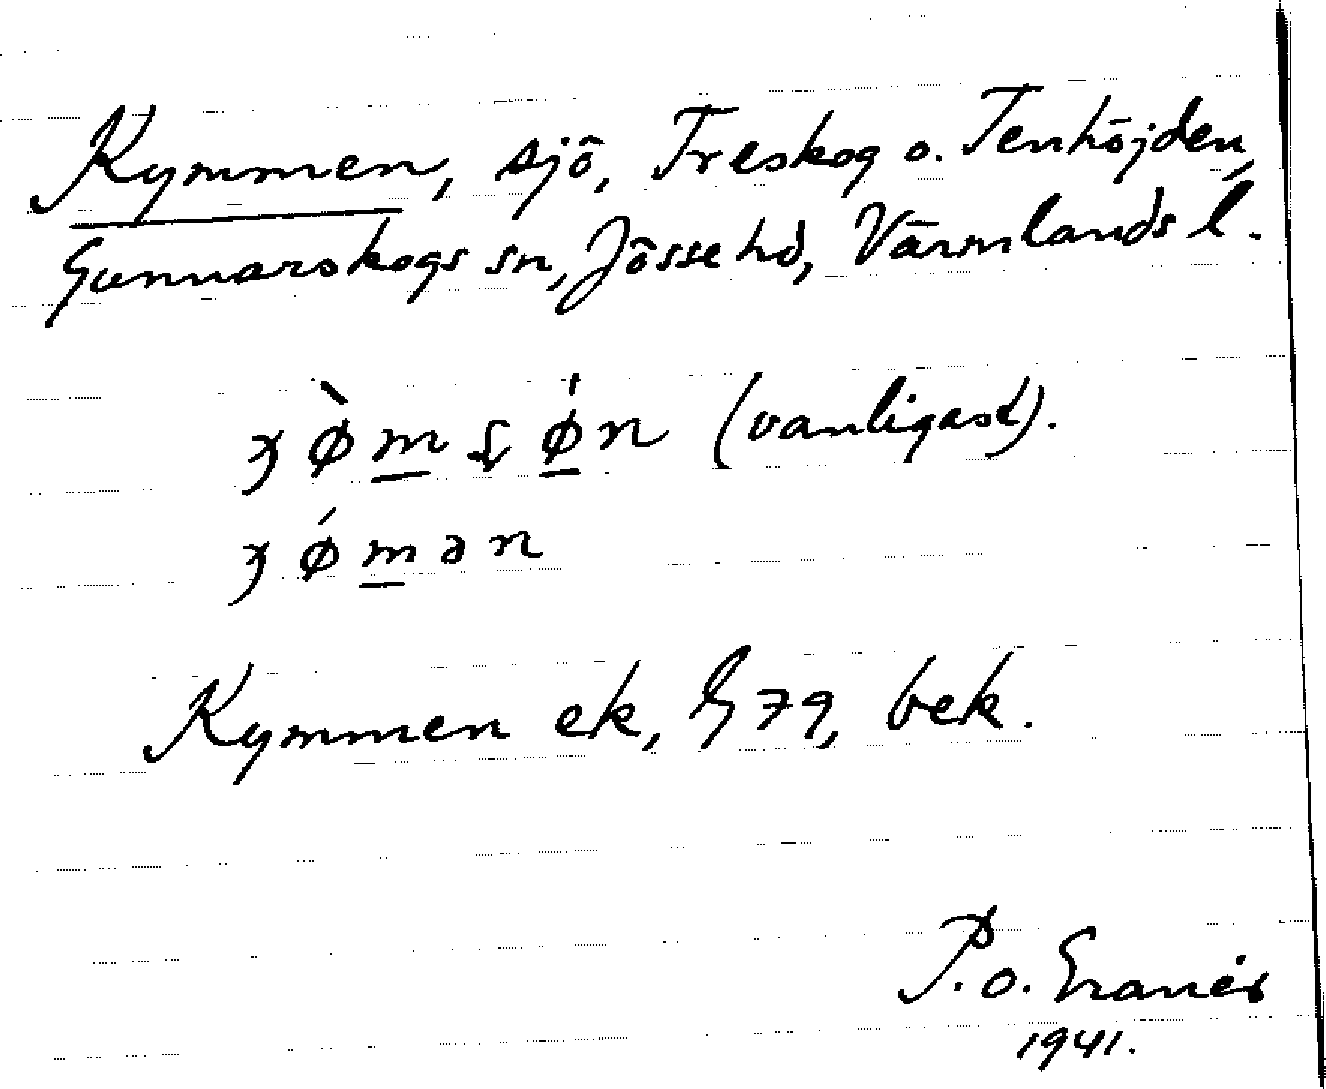 Kymmen, sjö, Treskog o. Tenhöjden,
Gunnarskogs sn, Jösse hd, Värmlands l.
(vanligast).
Kymmen ek, G 79, bek.
P. O. Granér
1941.